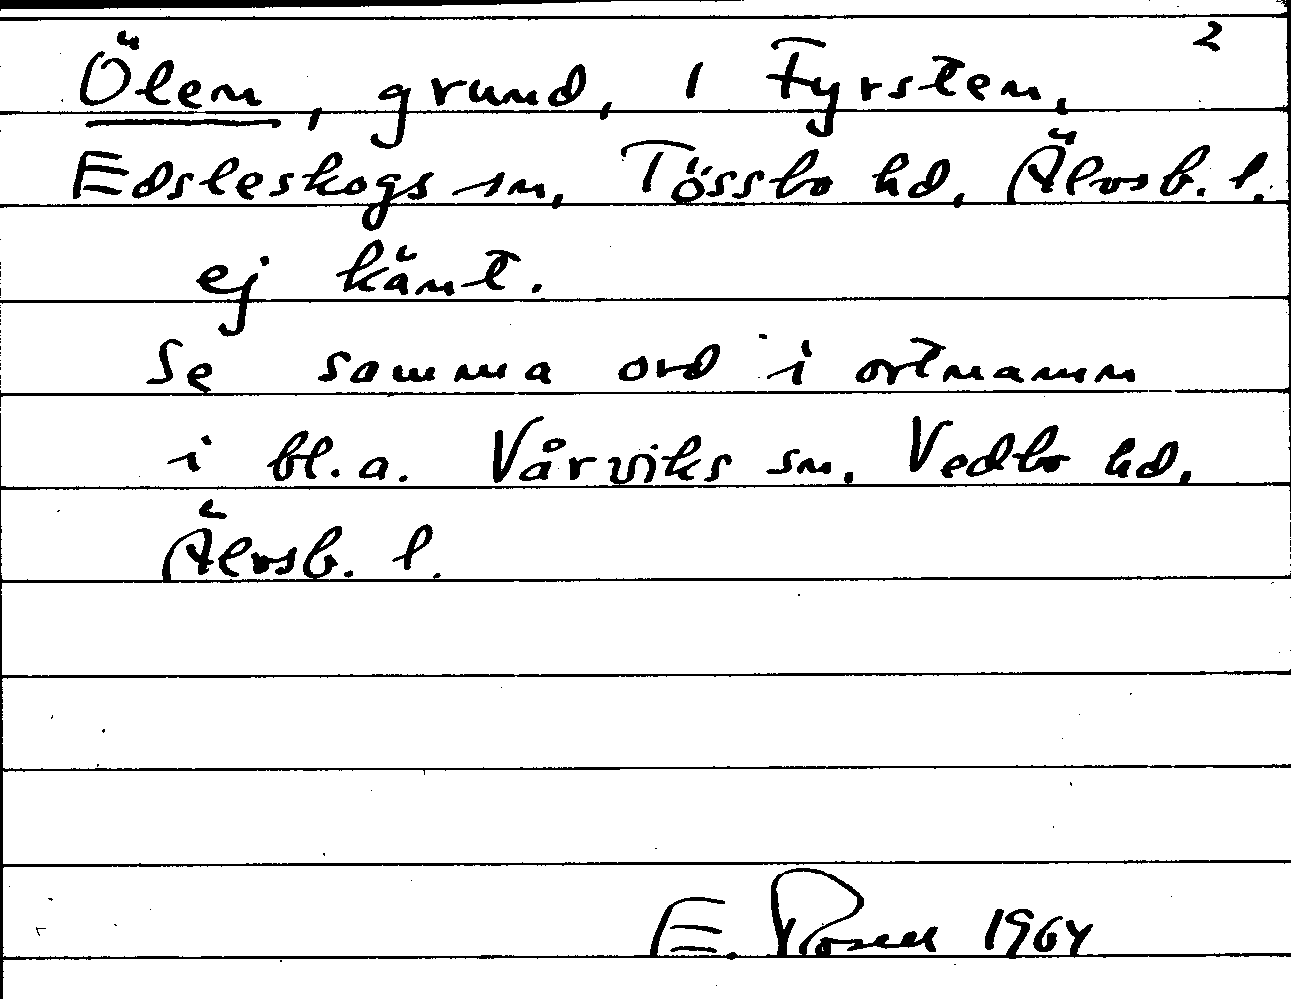 2
Ölen, grund, i Fyrsten,
Edsleskogs sn, Tössbo hd, Älvsb. l.
ej känt.
Se samma ord i ortnamn
i bl.a. Vårviks sn, Vedbo hd,
Älvsb. l.
E. Rosell 1964